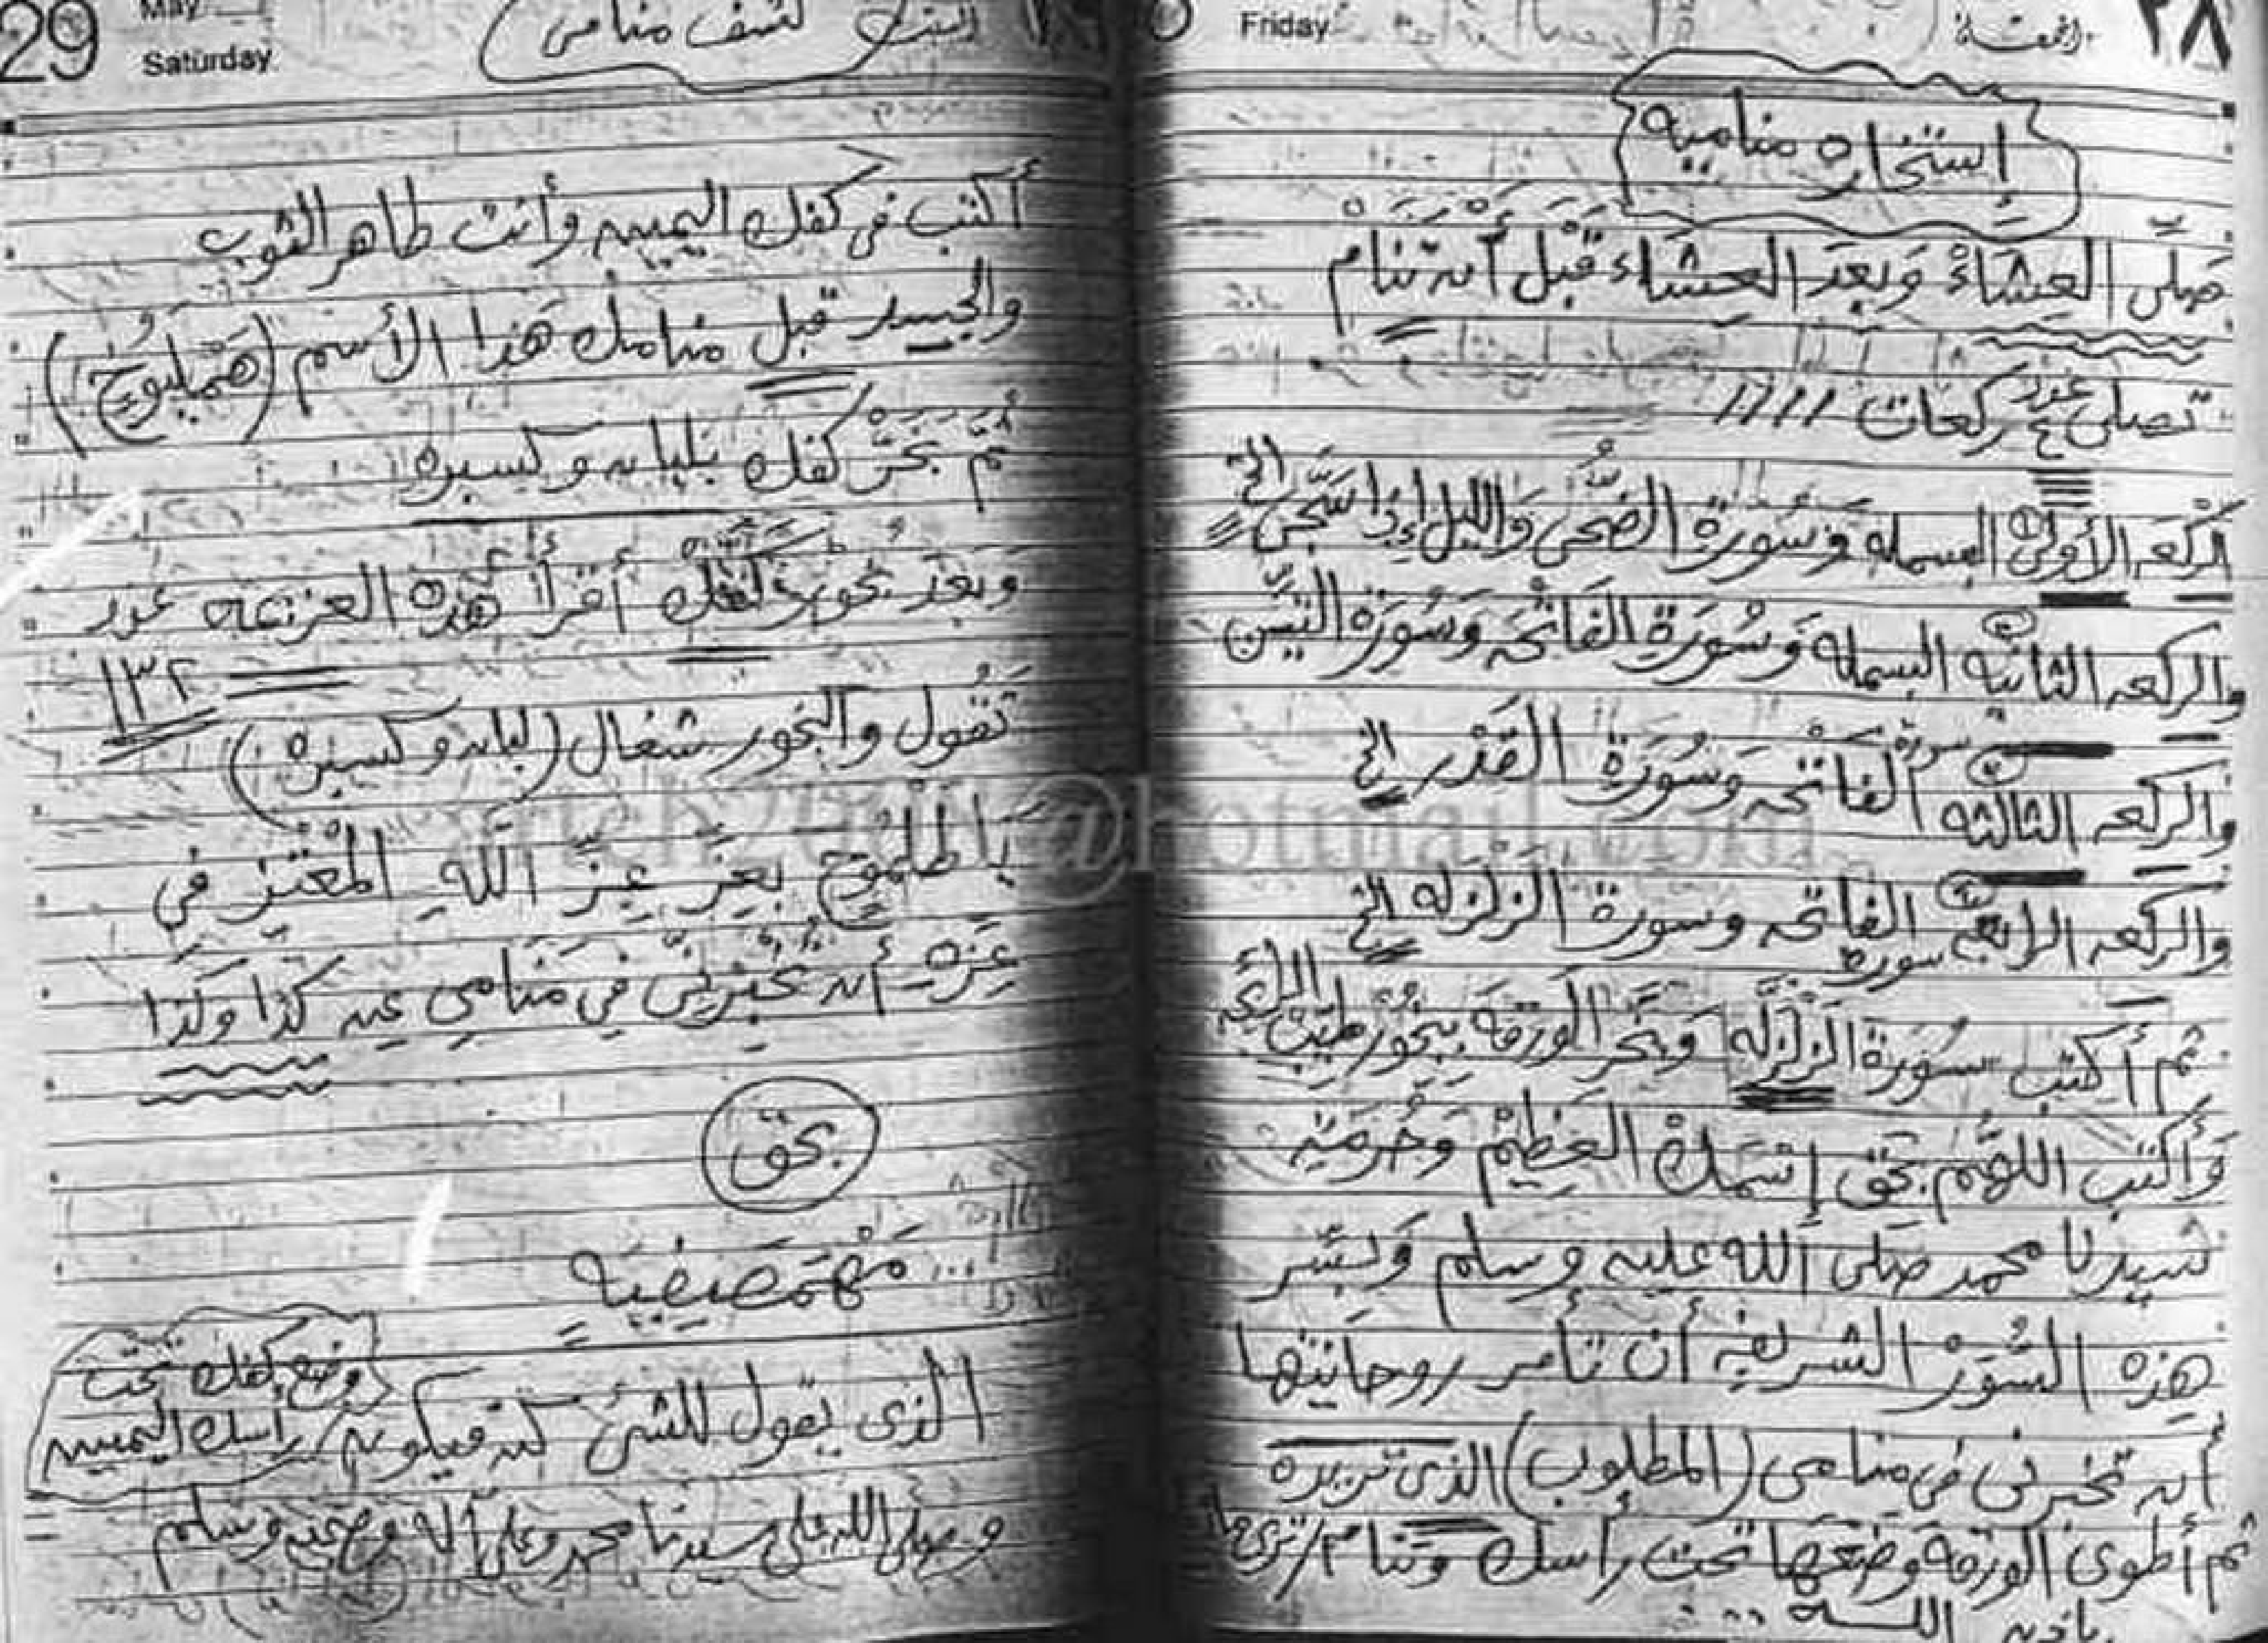 الجمعة ٢٨
Friday
إستخاره مناميه
صلّى العِشَاءْ وَبعدَ العِشَاء قَبْل أن تنام
تصلى عدد ٤ ركعات
الركْعَه الأولىٰ البسمله وَسُورة الضُّحى وَالليل إذا سَجَى الخ
والركعه الثانيه البسمله وَسُورَة الفَاتْحَه وَسُورَة التِيْن
والركعه الثالثه سورة الفَاتحَه وَسُورَة القَدْر الخ
والركعه الرابعه سورة الفاتحه وسورة الزلزله الخ
ثم أكتب سُورَة الزلزَلَه وَبخر الورَقَه ببخُور طَيّب الرائحه
وَأكتب اللهُم بحق إسْمَكْ العَظِيْم وَحُرمَة
سيدنا محمد صَلى الله عليه وسلم وَبسّر
هذه السُّوَرْ الشريفه أن تأمر روحانيتها
أن تخبرنى فى منامى (المطلوب) الذى تريده
ثم أطوى الورقة وَضعَها تحت رأسك وتنام ترى
بإذن الله ...
29 May
Saturday
كشف منامى
أكتب فى كفك اليمين وأنت طاهر الثوب
والجسد قبل منامك هَذا الأسم (
ثمَّ بَخّرْ كفك بلبان وكسبره
وَبعدَ بخور كفك أقرأ هَذه العزيمه عدد
١٣٢
تقُول والبخور شغال (لبان وكسبره)
يَا طلمُوح بعِز عِزّ اللهِ المُعْتِز فى
عِزه أن تخبرنى فى منَامى عن كَذا وكَذا
بحق
الذى يقول للشئ كن فيكون
وضع كفك تحت
راسك اليمين
وصلى الله على سيدنا محمد وعلى آله وصحبه وسلم
@hotmail.com